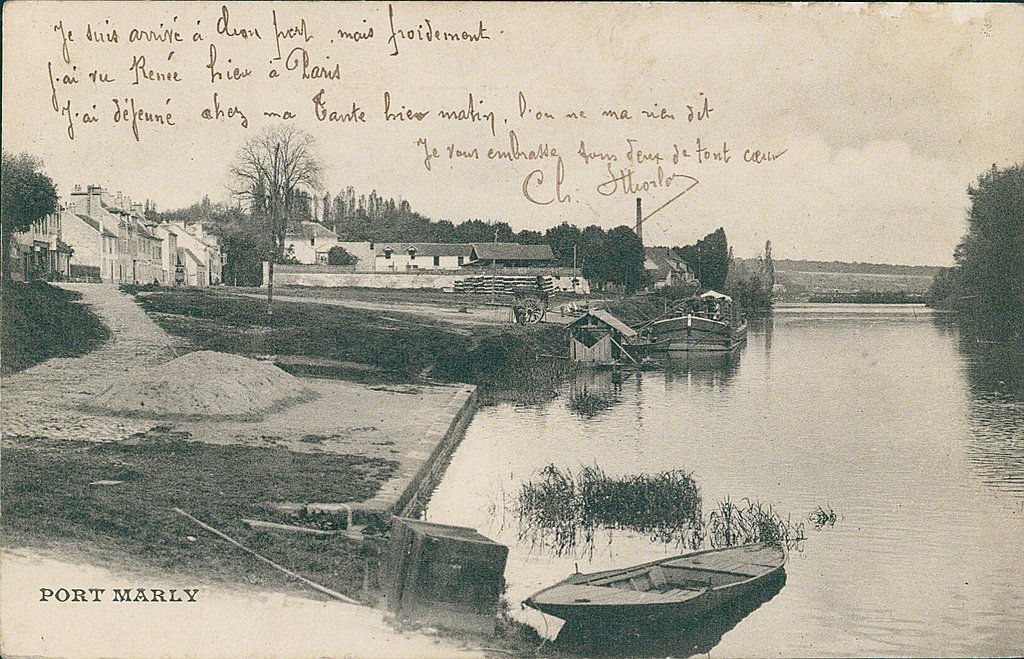 Je suis arrivé à bon port, mais froidement.
J'ai vu Renée hier à Paris
J'ai déjeuné chez ma Tante hier matin, l'on ne ma rien dit
Je vous embrasse tous deux de tout cœur
Ch.
PORT MARLY